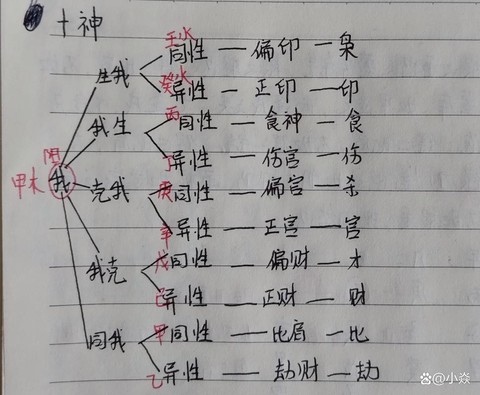 十神
生我
壬水 同性 — 偏印 — 枭
癸水 异性 — 正印 — 印
我生
丙 同性 — 食神 — 食
丁 异性 — 伤官 — 伤
阳
甲木 我
克我
庚 同性 — 偏官 — 杀
辛 异性 — 正官 — 官
我克
戊 同性 — 偏财 — 才
己 异性 — 正财 — 财
同我
甲 同性 — 比肩 — 比
乙 异性 — 劫财 — 劫
@小焱